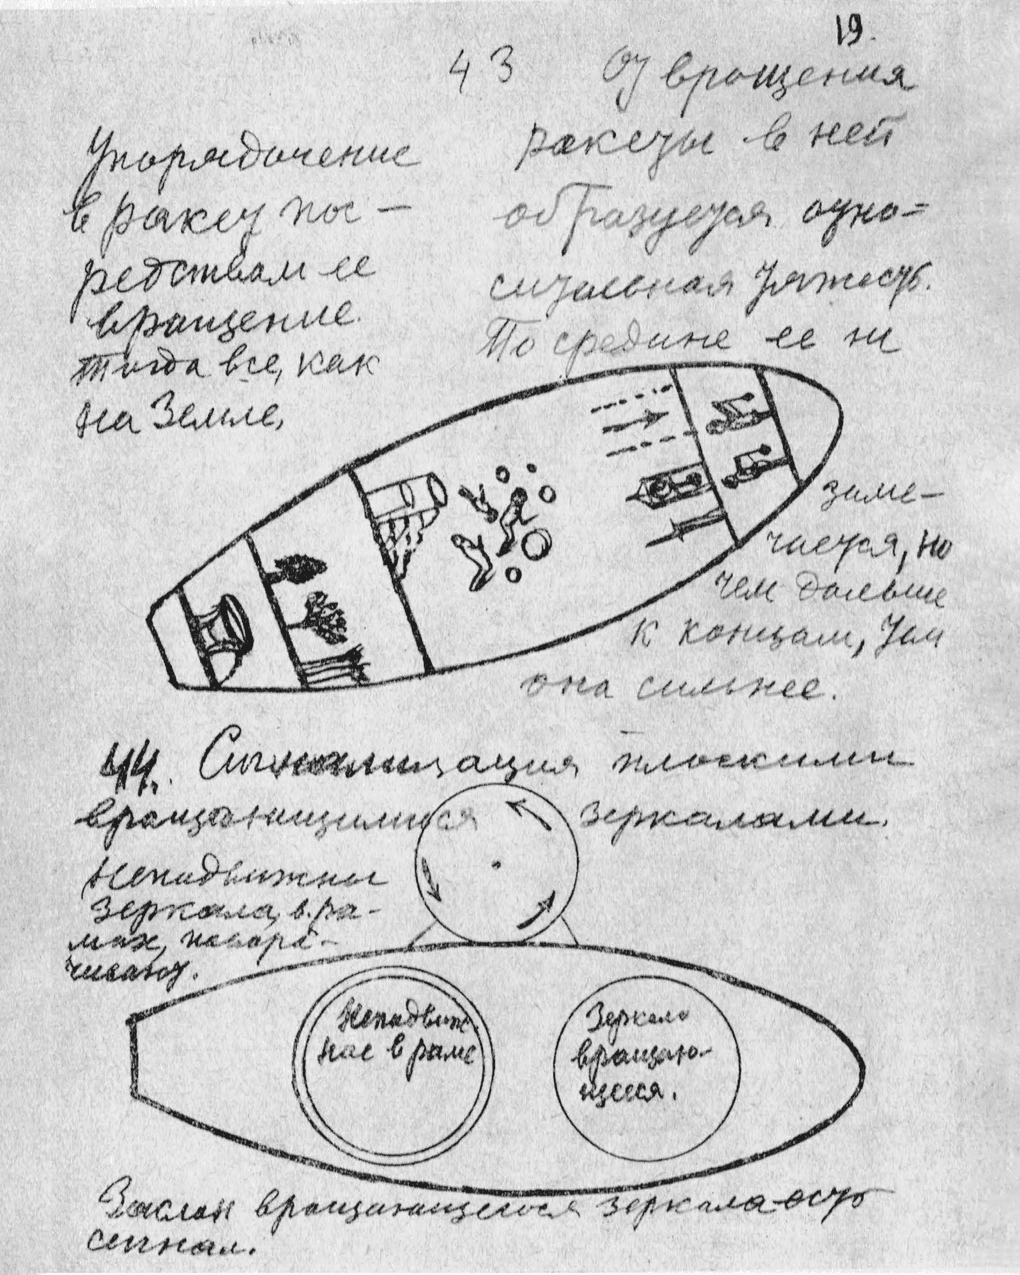 19.
43
Упорядочение
в ракет пос-
редствам ее
вращение.
Тогда все, как
на Земле,
От вращения
ракеты в ней
образуется отно=
сительная тяжесть.
По средине ее не
заме-
чается, но
чем дальше
к концам, тем
она сильнее.
44. Сигнализация плоскими
вращающимися зеркалами.
Неподвижны
зеркала, в ра-
мах, повора-
чивают.
Неподвиж-
ное в раме
Зеркало
вращаю-
щееся.
Заслон вращающегося зеркала-есть
сигнал.